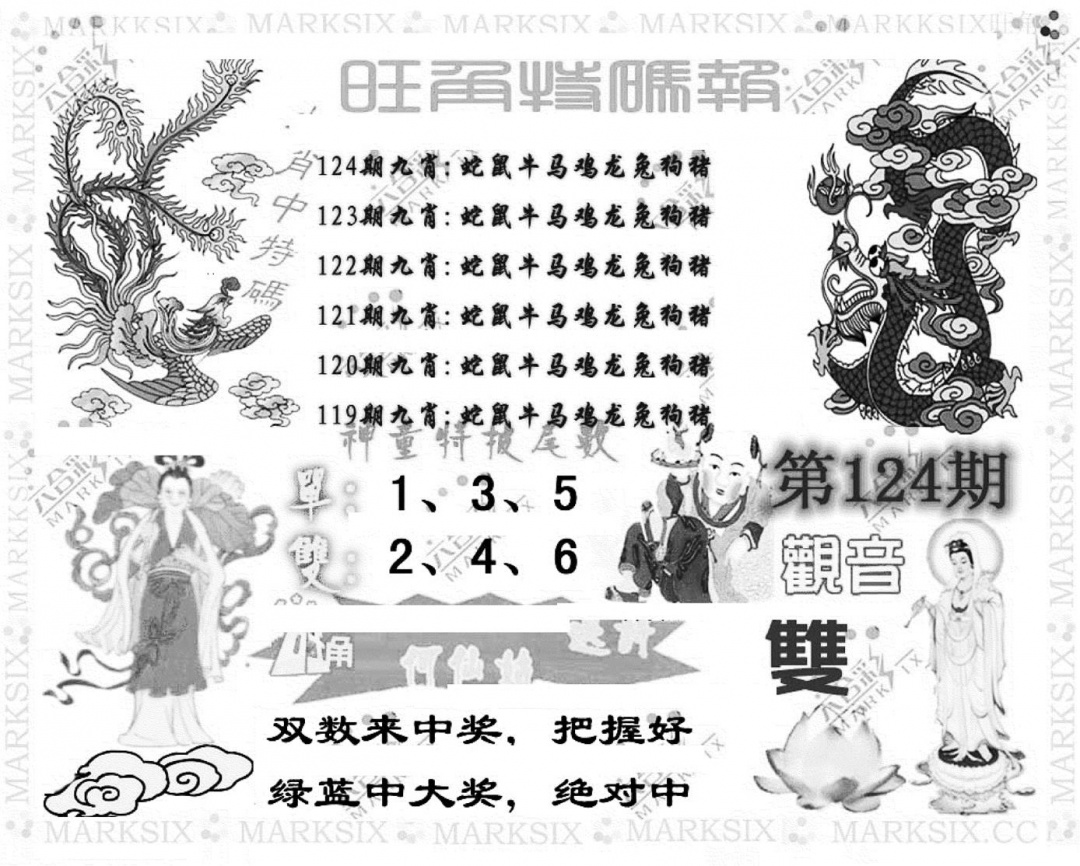 MARKSIX
旺角特碼報
肖中特碼
124期九肖:蛇鼠牛马鸡龙兔狗猪
123期九肖:蛇鼠牛马鸡龙兔狗猪
122期九肖:蛇鼠牛马鸡龙兔狗猪
121期九肖:蛇鼠牛马鸡龙兔狗猪
120期九肖:蛇鼠牛马鸡龙兔狗猪
119期九肖:蛇鼠牛马鸡龙兔狗猪
神童特报尾数
單: 1、3、5
雙: 2、4、6
第124期
觀音
雙
何仙姑
双数来中奖，把握好
绿蓝中大奖，绝对中
MARKSIX MARKSIX MARKSIX MARKSIX MARKSIX.CC